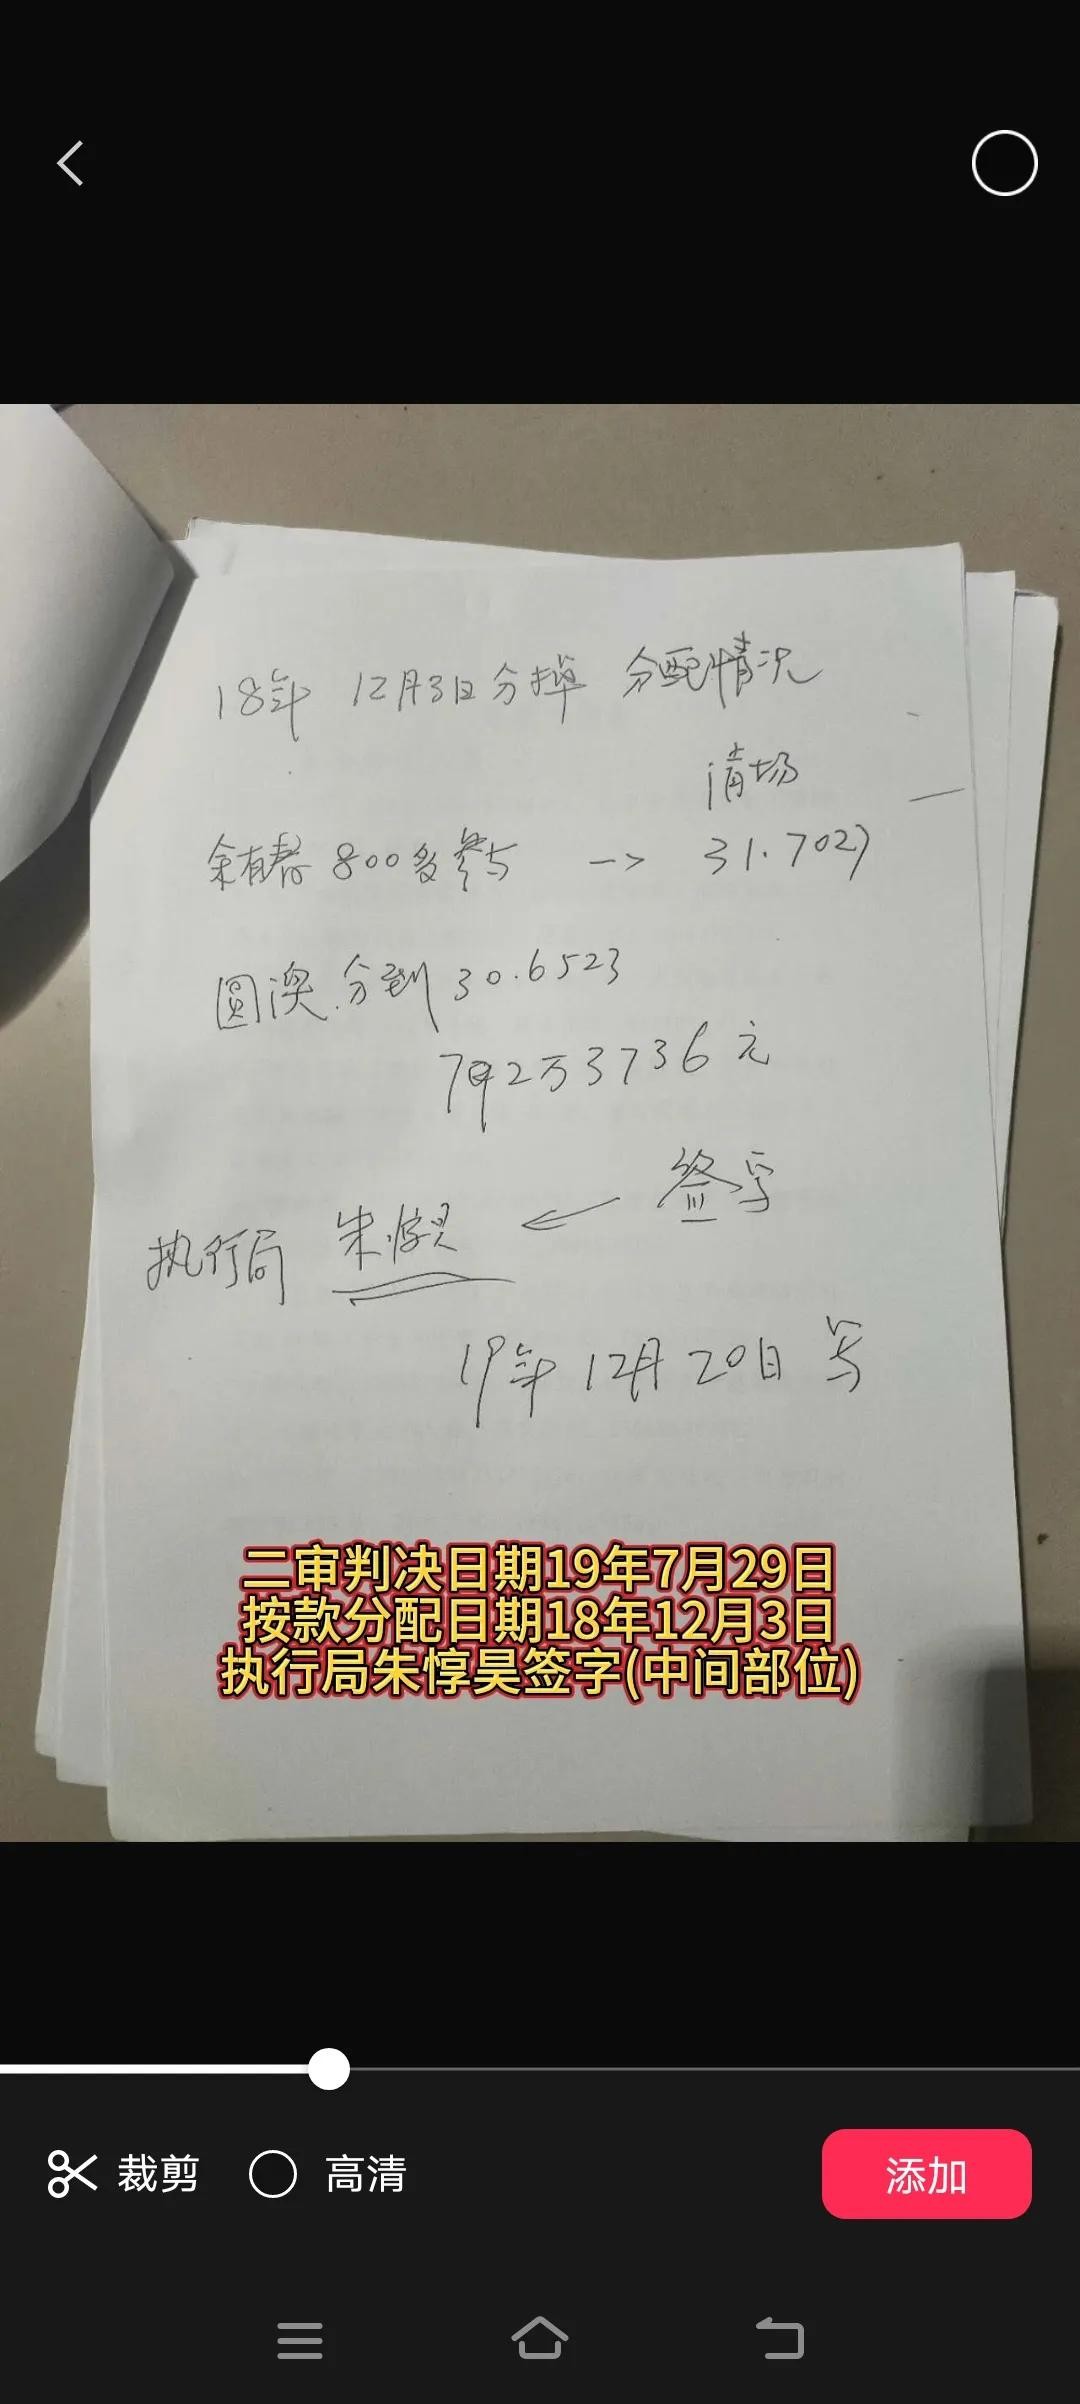 18年 12月3日分掉 分配情况
清场
余有春 800多参与 -> 31.7027
圆澳分到 30.6523
万3736元
签字
执行局 朱惇昊
19年12月20日写
二审判决日期19年7月29日
按款分配日期18年12月3日
执行局朱惇昊签字(中间部位)
裁剪
高清
添加